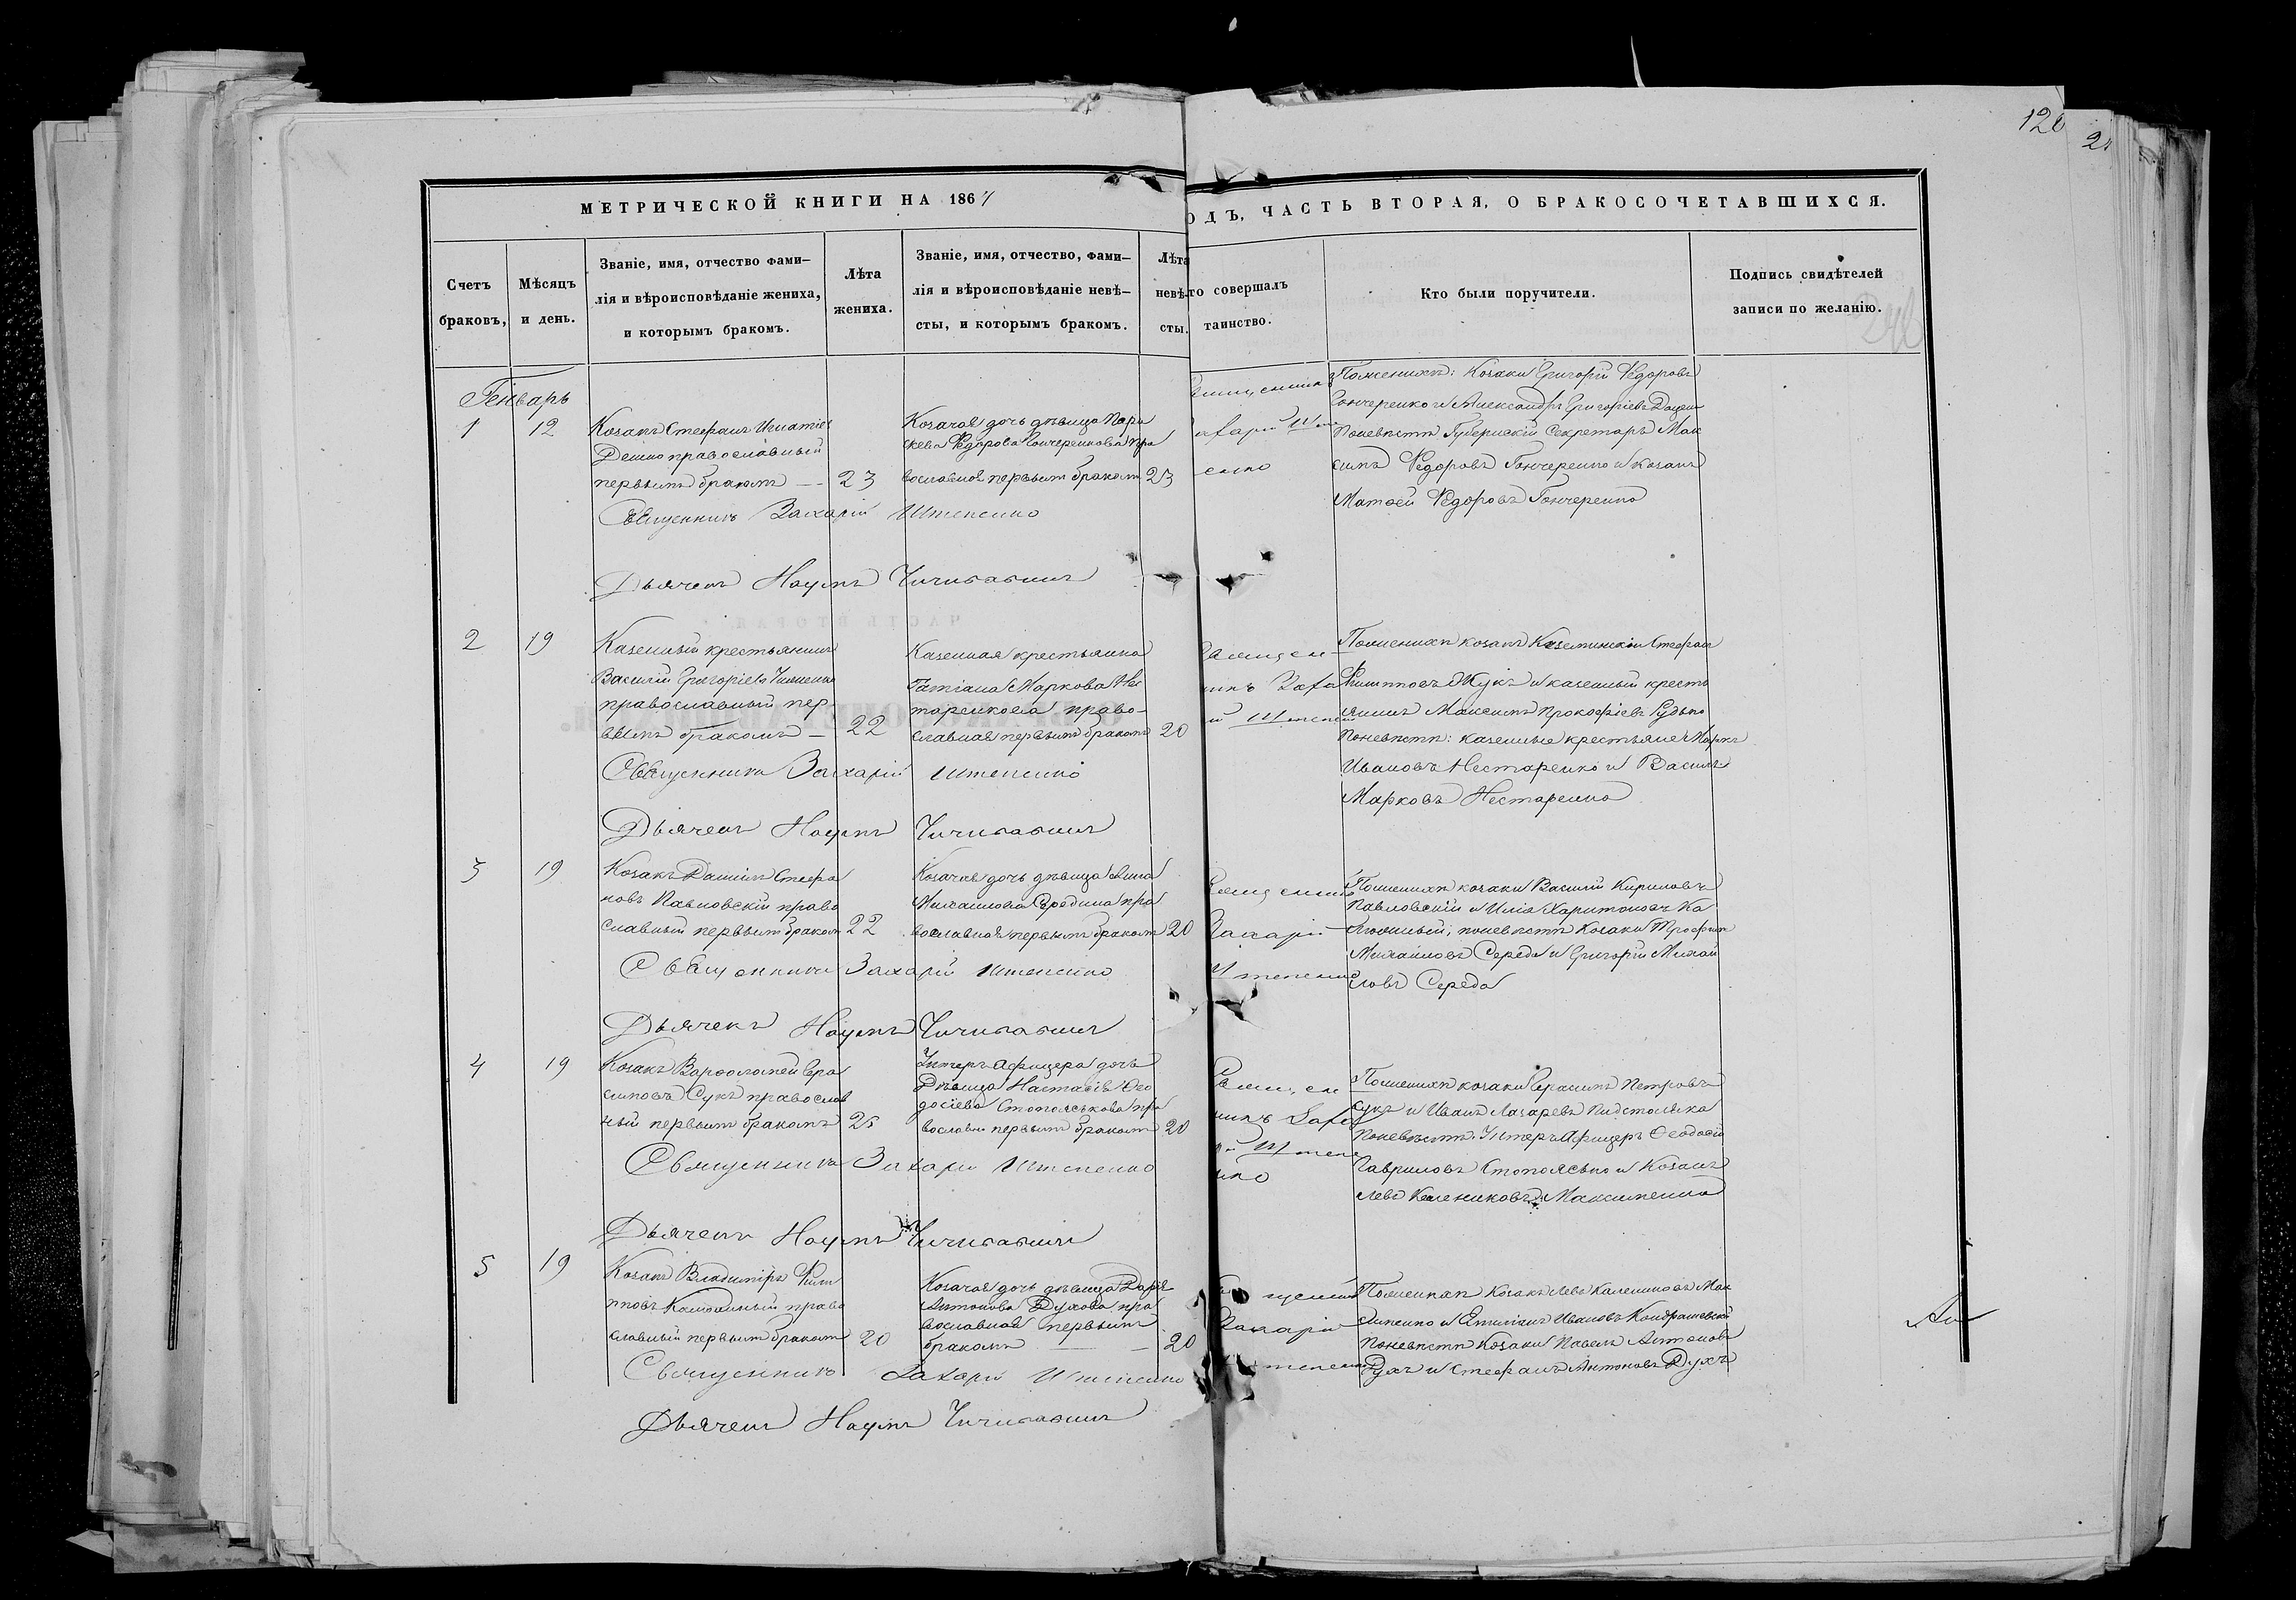 МЕТРИЧЕСКОЙ КНИГИ НА 1867
ОДЪ, ЧАСТЬ ВТОРАЯ, О БРАКОСОЧЕТАВШИХСЯ.
120
Счетъ браковъ,
Мѣсяцъ и день.
Званіе, имя, отчество фами-
лія и вѣроисповѣданіе жениха,
и которымъ бракомъ.
Лѣта
жениха.
Званіе, имя, отчество, фами-
лія и вѣроисповѣданіе невѣ-
сты, и которымъ бракомъ.
Лѣта
невѣ-
сты.
то совершалъ
таинство.
Кто были поручители.
Подпись свидѣтелей
записи по желанію.
Генварь
1
12
Козакъ Стефанъ Игнатіев
православный
первымъ бракомъ — 23
Козачая дочь дѣвица Пара
скева Ѳедорова Гончеренкова пра
вославная первымъ бракомъ 23
Захарій Ште
енко
Пожениху: Козаки Григорій Ѳедоровъ
Гончеренко и Александръ Григоріевъ
Поневѣстѣ Губернскій Секретарь Мак
симъ Ѳедоровъ Гончеренко и козакъ
Матѳей Ѳедоровъ Гончеренко
Священникъ Захарій Штепенко
Дьячекъ Наумъ
2
19
Казенный крестьянинъ
Василій Григоріевъ
православный пер-
вымъ бракомъ — 22
Казенная крестьянка
Татіана Маркова Нес
таренкова право-
славная первымъ бракомъ 20
Пожениху козакъ Стефан
Филипповъ Жукъ и казенный кресть
янинъ Максимъ Прокофіевъ Рудько
Поневѣстѣ: казенные крестьяне Маркъ
Ивановъ Нестаренко и Василій
Марковъ Нестаренко
Священникъ Захарій Штепенко
Дьячекъ Наумъ
3
19
Козакъ Даніилъ Стефа
новъ Павловскій право
славный первымъ бракомъ 22
Козачая дочь дѣвица Анна
Михаилова Середина пра
вославная первымъ бракомъ 20
Захарій
Штепенко
Пожениху козаки Василій Кириловъ
Павловскій и Илія Харитоновъ Ка
поневѣстѣ Козаки Трофим
Михаиловъ Середа и Григорій Михаи
ловъ Середа
Священникъ Захарій Штепенко
Дьячекъ Наумъ
4
19
Козакъ Варѳоломей Гера
симовъ Сукъ православ
ный первымъ бракомъ 25
Унтеръ Афицера дочь
Дѣвица Настасія Ѳео
досіева Стопаськова пра
вославн первымъ бракомъ 20
Пожениху козаки Герасимъ Петровъ
Сукъ и Иванъ Лазаревъ
Поневѣстѣ: Унтеръ Афицеръ Ѳеодосій
Гавриловъ Стопасько и Козакъ
Левъ Калениковъ Максименко
Священникъ Захарій Штепенко
Дьячекъ Наумъ
5
19
Козакъ Владиміръ Фили
пповъ право
славный первымъ бракомъ 20
Козачая дочь дѣвица Дарія
Антонова Духова пра
вославная первымъ
бракомъ — 20
Захарій
Пожениху Козакъ Левъ Калениковъ Мак
сименко и Ивановъ
Поневѣстѣ Козаки Павелъ Антоновъ
Духъ и Стефанъ Антоновъ Духъ
Священникъ Захарій Штепенко
Дьячекъ Наумъ